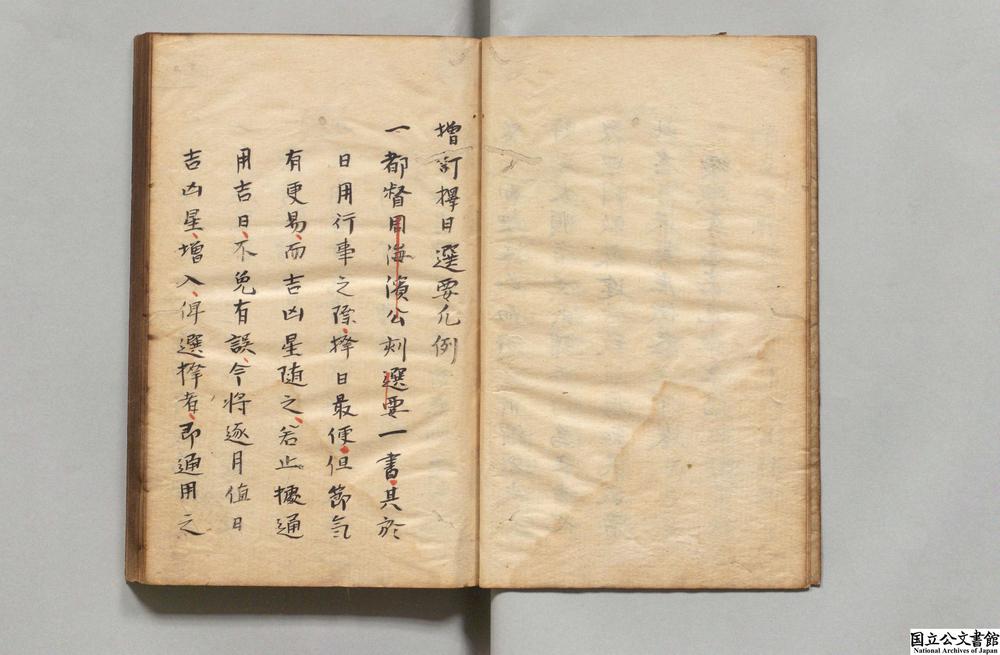 增訂擇日選要凡例
一都督周海濱公刻選要一書其於
日用行事之際擇日最便但節氣
有更易而吉凶星隨之若止據通
用吉日不免有誤今將逐月值日
吉凶星增入俾選擇者即通用之
国立公文書館
National Archives of Japan